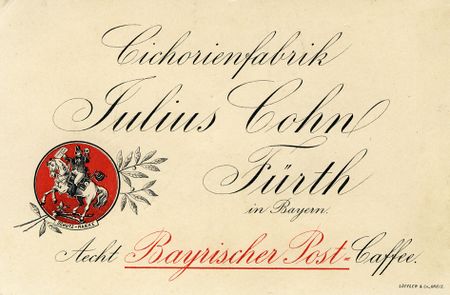 Cichorienfabrik
Julius Cohn
Fürth
in Bayern.
SCHUTZ-MARKE
Aecht Bayrischer Post-Caffee.